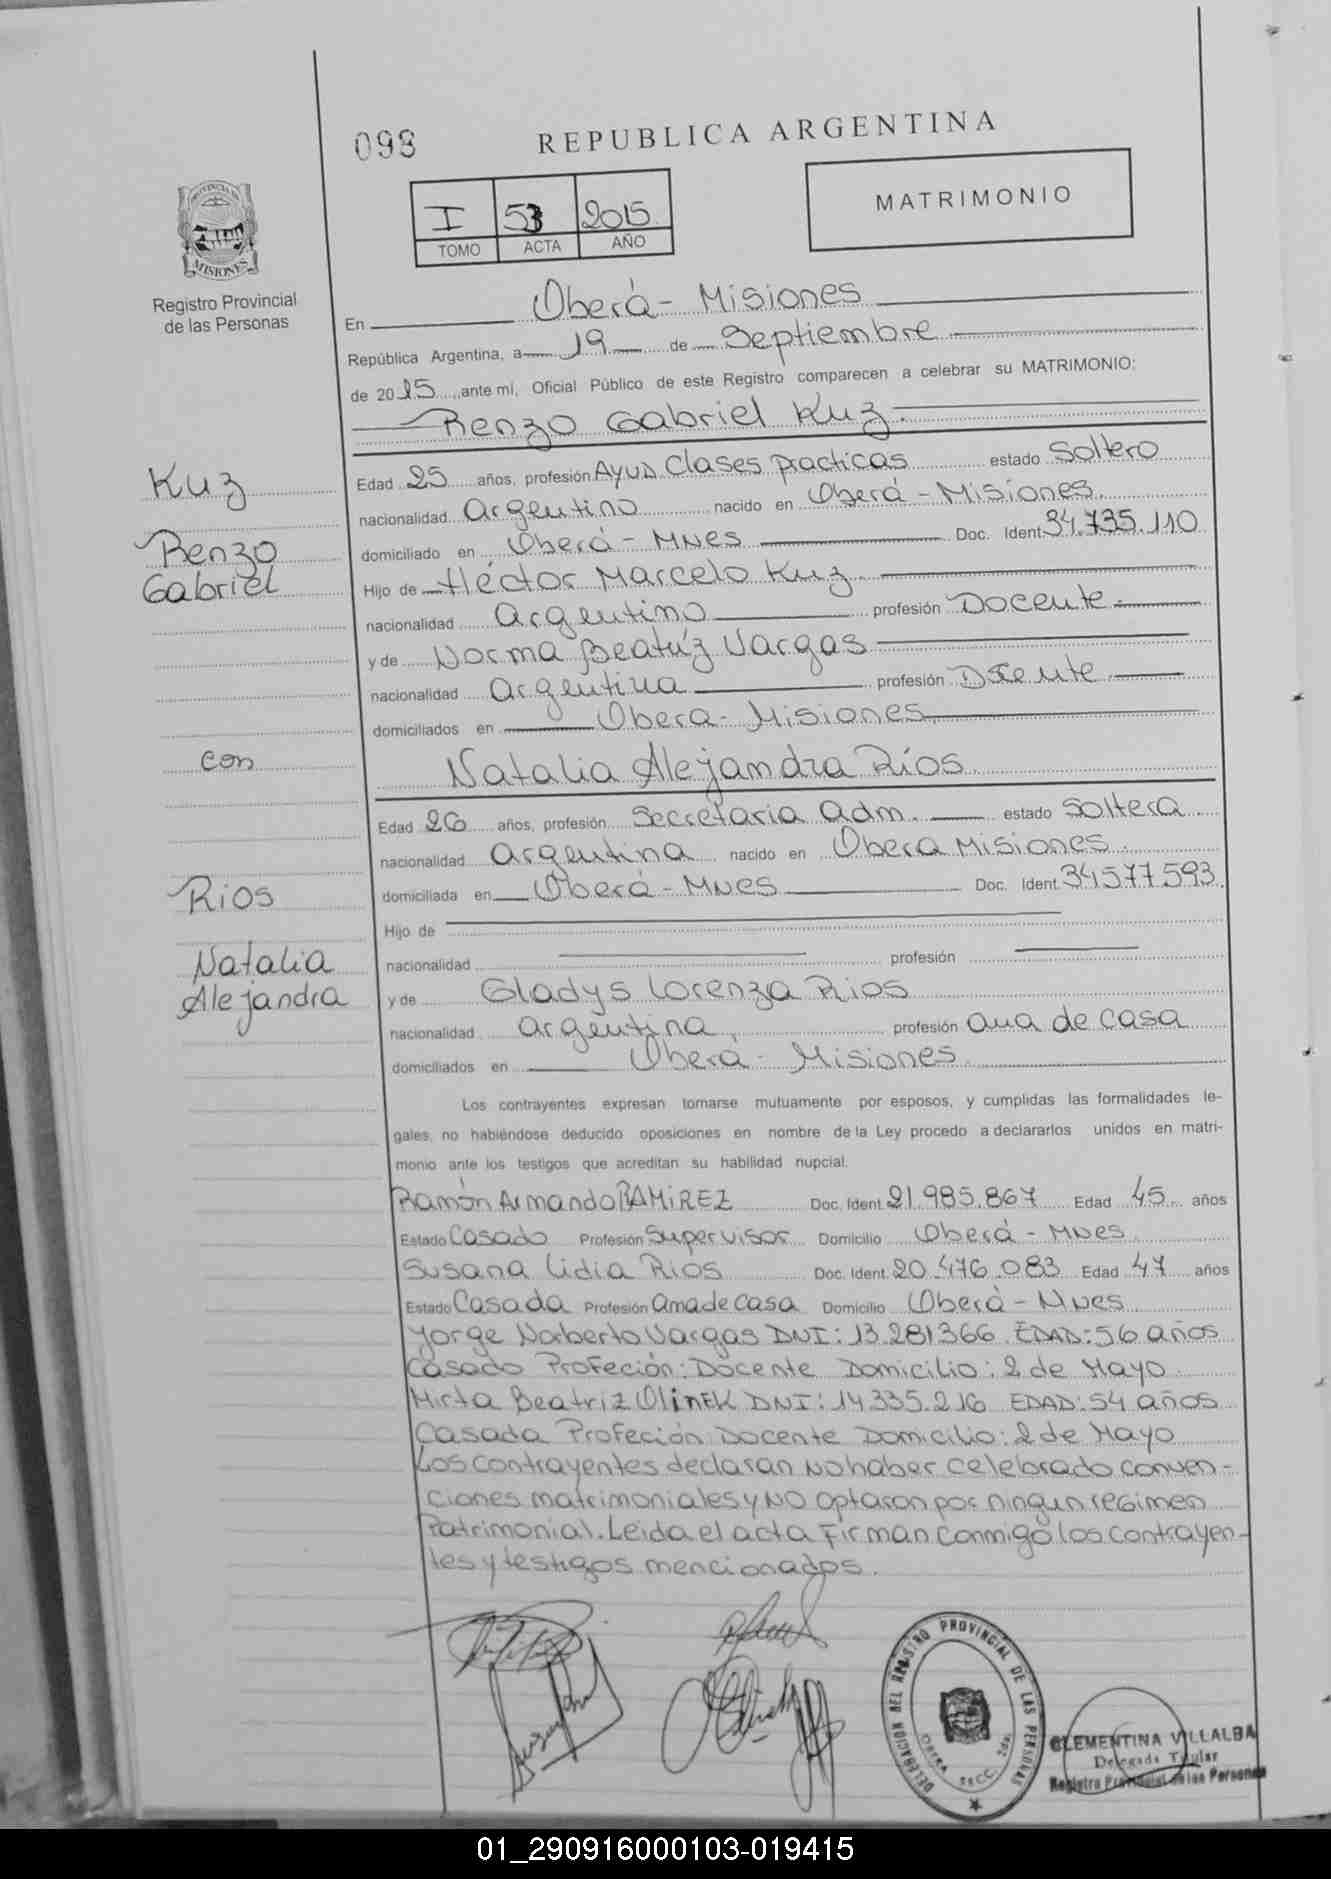 098
REPUBLICA ARGENTINA
I 53 2015
TOMO ACTA AÑO
MATRIMONIO
PROVINCIA DE
MISIONES
Registro Provincial
de las Personas
En Oberá - Misiones
República Argentina, a 19 de Septiembre
de 2015, ante mí, Oficial Público de este Registro comparecen a celebrar su MATRIMONIO:
Renzo Gabriel Kuz
Kuz
Renzo
Gabriel
con
Rios
Natalia
Alejandra
Edad 25 años, profesión Ayud Clases practicas estado Soltero
nacionalidad Argentino nacido en Oberá - Misiones
domiciliado en Oberá - Mnes Doc. Ident. 34.735.110
Hijo de Héctor Marcelo Kuz
nacionalidad Argentino profesión Docente
y de Norma Beatríz Vargas
nacionalidad Argentina profesión Docente
domiciliados en Obera - Misiones
Natalia Alejandra Ríos
Edad 26 años, profesión Secretaria Adm. estado Soltera
nacionalidad Argentina nacido en Obera Misiones
domiciliada en Oberá - Mnes Doc. Ident. 34577.593
Hijo de
nacionalidad profesión
y de Gladys Lorenza Rios
nacionalidad argentina profesión ama de casa
domiciliados en Oberá - Misiones
Los contrayentes expresan tomarse mutuamente por esposos, y cumplidas las formalidades le-
gales, no habiéndose deducido oposiciones en nombre de la Ley procedo a declararlos unidos en matri-
monio ante los testigos que acreditan su habilidad nupcial.
Ramón Armando RAMIREZ Doc. Ident. 21.985.867 Edad 45 años
Estado Casado Profesión Supervisor Domicilio Oberá - Mnes
Susana Lidia Rios Doc. Ident. 20.476.083 Edad 47 años
Estado Casada Profesión ama de casa Domicilio Oberá - Mnes
Jorge Norberto Vargas DNI: 13.281366 EDAD: 56 años
Casado Profeción: Docente Domicilio: 2 de Mayo
Mirta Beatriz OlinEK DNI: 14.335.216 EDAD: 54 años
Casada Profeción: Docente Domicilio: 2 de Mayo
Los contrayentes declaran no haber celebrado conven-
ciones matrimoniales y NO optaron por ningun regimen
Patrimonial. Leida el acta Firman conmigo los contrayen-
tes y testigos mencionados.
DELEGACION DEL REGISTRO PROVINCIAL DE LAS PERSONAS
OBERA SECC. 2da.
CLEMENTINA VILLALBA
Delegada Titular
Registro Provincial de las Personas
01_290916000103-019415